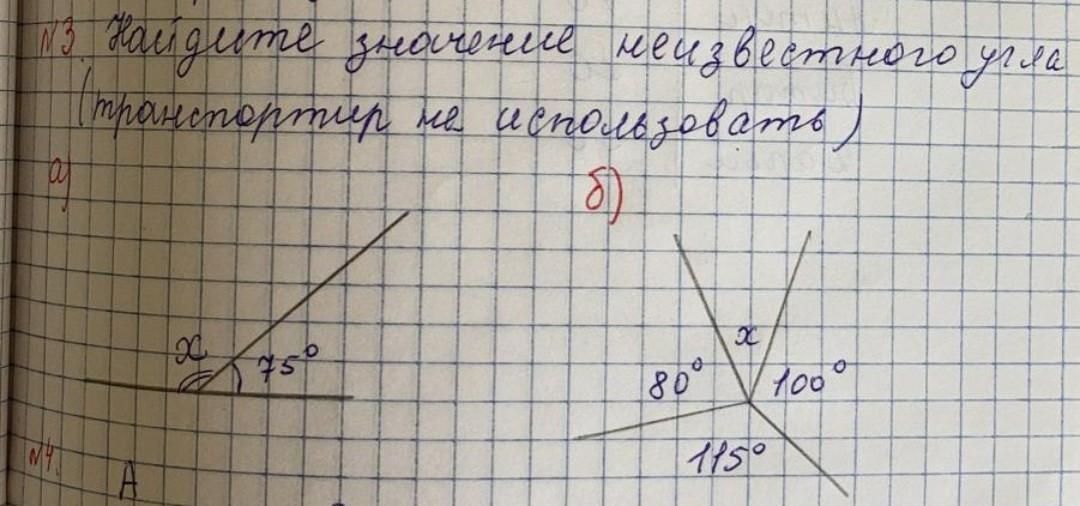 №3. Найдите значение неизвестного угла
(транспортир не использовать)
а)
б)
x
75°
80°
x
100°
115°
№4.
А